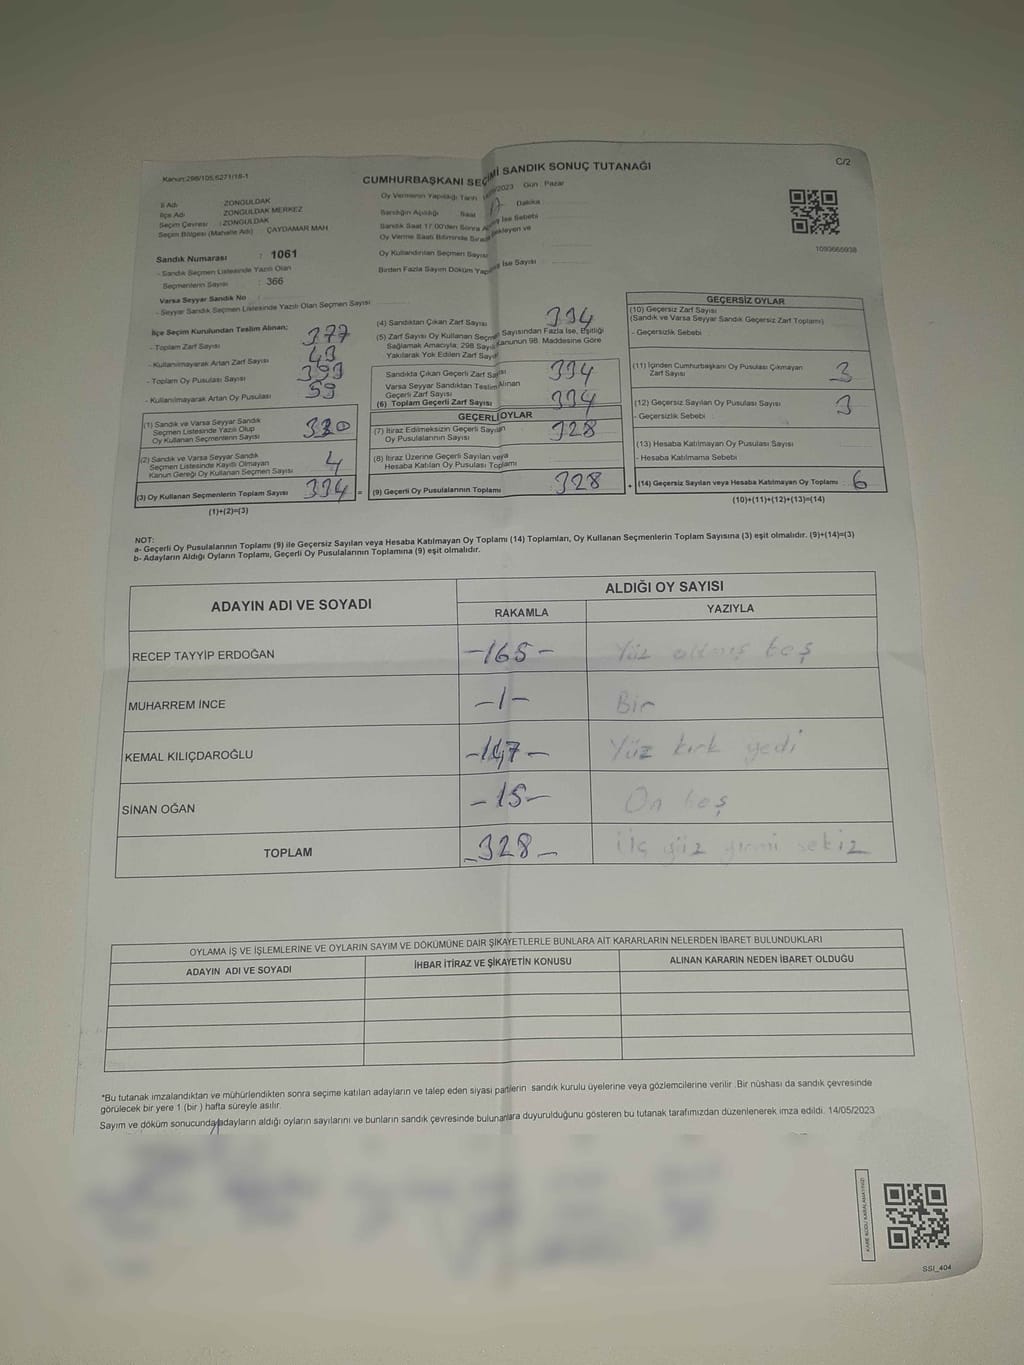 Kanun:298/105,6271/18-1
C/2
CUMHURBAŞKANI SEÇİMİ SANDIK SONUÇ TUTANAĞI
İl Adı ZONGULDAK
İlçe Adı ZONGULDAK MERKEZ
Seçim Çevresi : ZONGULDAK
Seçim Bölgesi (Mahalle Adı) : ÇAYDAMAR MAH
Sandık Numarası : 1061
- Sandık Seçmen Listesinde Yazılı Olan
Seçmenlerin Sayısı : 366
Varsa Seyyar Sandık No :
- Seyyar Sandık Seçmen Listesinde Yazılı Olan Seçmen Sayısı
Oy Vermenin Yapıldığı Tarih /2023 Gün : Pazar
Sandığın Açıldığı Saat Dakika
Sandık Saat 17.00'den Sonra İse Sebebi
Oy Verme Saati Bitiminde Sırada Bekleyen ve
Oy Kullandırılan Seçmen Sayısı
Birden Fazla Sayım Döküm Yapılmış İse Sayısı
1093665938
İlçe Seçim Kurulundan Teslim Alınan;
- Toplam Zarf Sayısı 377
- Kullanılmayarak Artan Zarf Sayısı 43
- Toplam Oy Pusulası Sayısı 393
- Kullanılmayarak Artan Oy Pusulası 59
(1) Sandık ve Varsa Seyyar Sandık
Seçmen Listesinde Yazılı Olup
Oy Kullanan Seçmenlerin Sayısı 330
(2) Sandık ve Varsa Seyyar Sandık
Seçmen Listesinde Kayıtlı Olmayan
Kanun Gereği Oy Kullanan Seçmen Sayısı 4
(3) Oy Kullanan Seçmenlerin Toplam Sayısı 334 =
(1)+(2)=(3)
(4) Sandıktan Çıkan Zarf Sayısı 334
(5) Zarf Sayısı Oy Kullanan Seçmen Sayısından Fazla İse, Eşitliği
Sağlamak Amacıyla; 298 Sayılı Kanunun 98. Maddesine Göre
Yakılarak Yok Edilen Zarf Sayısı
Sandıkta Çıkan Geçerli Zarf Sayısı 334
Varsa Seyyar Sandıktan Teslim Alınan
Geçerli Zarf Sayısı
(6) Toplam Geçerli Zarf Sayısı 334
GEÇERLİ OYLAR
(7) İtiraz Edilmeksizin Geçerli Sayılan
Oy Pusulalarının Sayısı 328
(8) İtiraz Üzerine Geçerli Sayılan veya
Hesaba Katılan Oy Pusulası Toplamı
(9) Geçerli Oy Pusulalarının Toplamı 328 +
GEÇERSİZ OYLAR
(10) Geçersiz Zarf Sayısı
(Sandık ve Varsa Seyyar Sandık Geçersiz Zarf Toplamı)
- Geçersizlik Sebebi
(11) İçinden Cumhurbaşkanı Oy Pusulası Çıkmayan
Zarf Sayısı 3
(12) Geçersiz Sayılan Oy Pusulası Sayısı 3
- Geçersizlik Sebebi
(13) Hesaba Katılmayan Oy Pusulası Sayısı
- Hesaba Katılmama Sebebi
(14) Geçersiz Sayılan veya Hesaba Katılmayan Oy Toplamı : 6
(10)+(11)+(12)+(13)=(14)
NOT:
a- Geçerli Oy Pusulalarının Toplamı (9) ile Geçersiz Sayılan veya Hesaba Katılmayan Oy Toplamı (14) Toplamları, Oy Kullanan Seçmenlerin Toplam Sayısına (3) eşit olmalıdır. (9)+(14)=(3)
b- Adayların Aldığı Oyların Toplamı, Geçerli Oy Pusulalarının Toplamına (9) eşit olmalıdır.
ADAYIN ADI VE SOYADI ALDIĞI OY SAYISI
RAKAMLA YAZIYLA
RECEP TAYYİP ERDOĞAN -165- Yüz altmış beş
MUHARREM İNCE -1- Bir
KEMAL KILIÇDAROĞLU -147- Yüz kırk yedi
SİNAN OĞAN -15- On beş
TOPLAM -328- Üç yüz yirmi sekiz
OYLAMA İŞ VE İŞLEMLERİNE VE OYLARIN SAYIM VE DÖKÜMÜNE DAİR ŞİKAYETLERLE BUNLARA AİT KARARLARIN NELERDEN İBARET BULUNDUKLARI
ADAYIN ADI VE SOYADI İHBAR İTİRAZ VE ŞİKAYETİN KONUSU ALINAN KARARIN NEDEN İBARET OLDUĞU
*Bu tutanak imzalandıktan ve mühürlendikten sonra seçime katılan adayların ve talep eden siyasi partilerin sandık kurulu üyelerine veya gözlemcilerine verilir .Bir nüshası da sandık çevresinde
görülecek bir yere 1 (bir ) hafta süreyle asılır.
Sayım ve döküm sonucunda adayların aldığı oyların sayılarını ve bunların sandık çevresinde bulunanlara duyurulduğunu gösteren bu tutanak tarafımızdan düzenlenerek imza edildi. 14/05/2023
KARE KODU KARALAMAYINIZ!
SSI_404